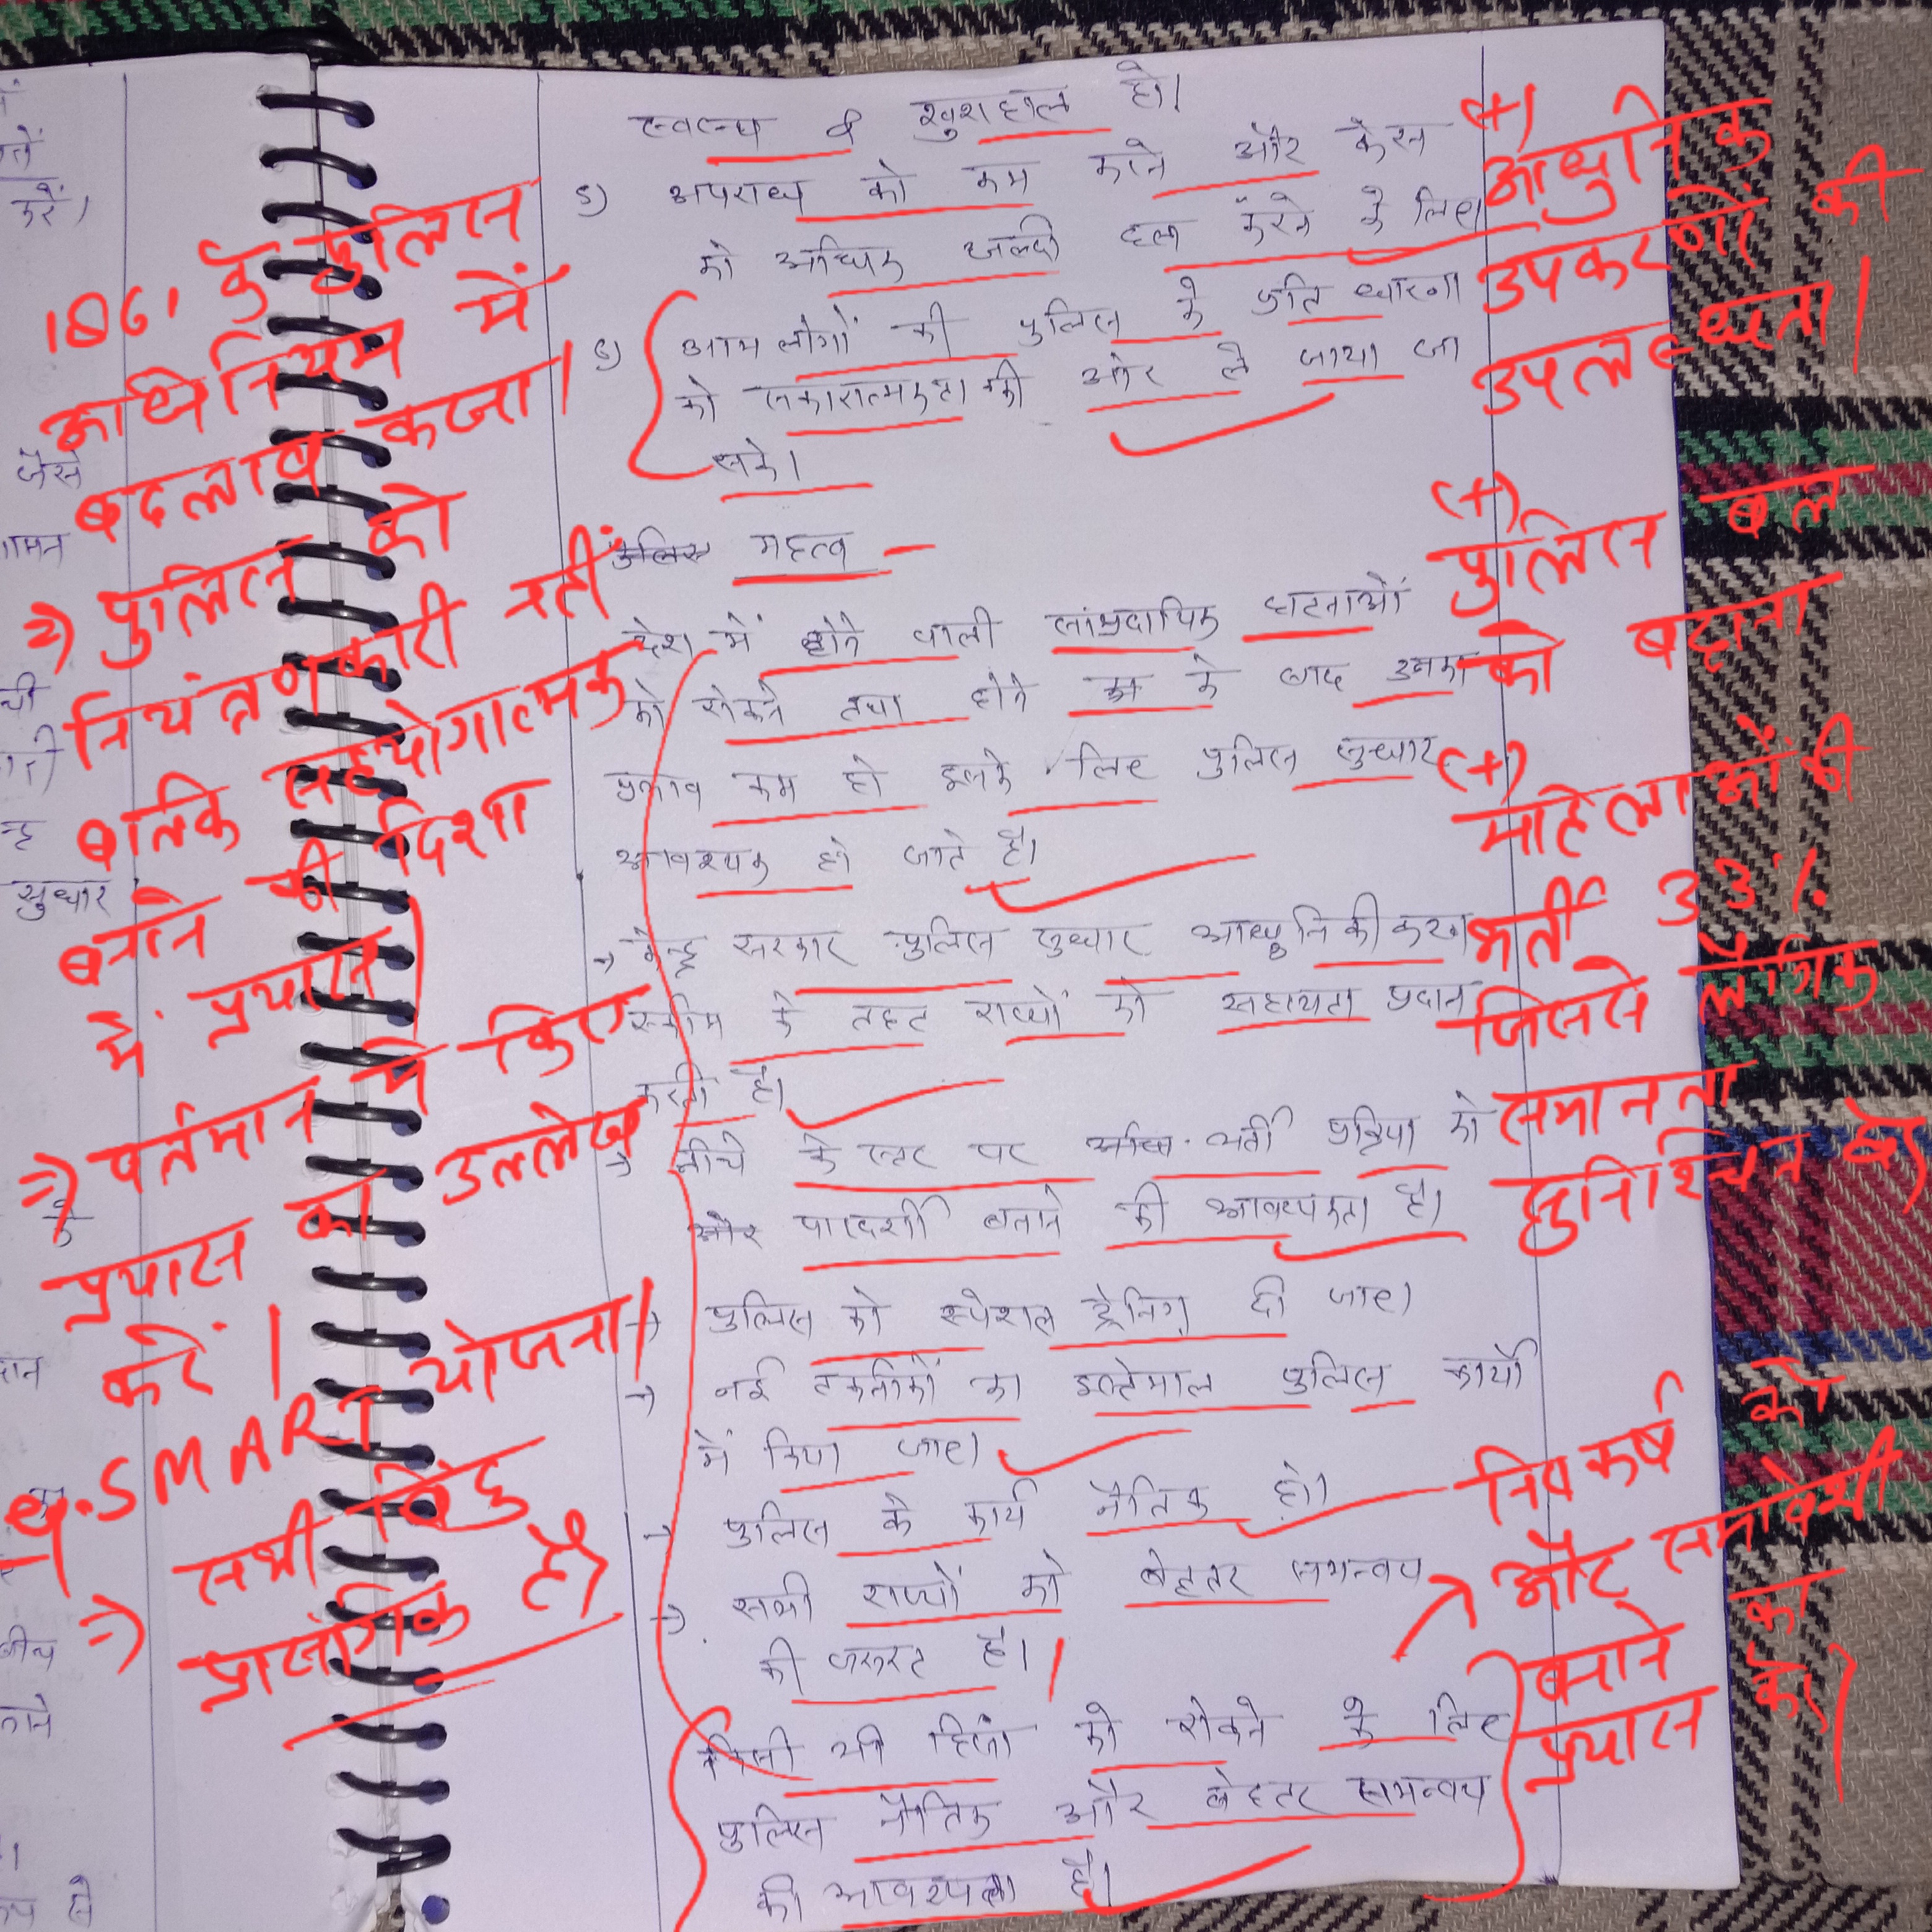 स्वस्थ व खुशहाल हो।
5) अपराध को कम करने और केस
को अधिक जल्दी हल करने के लिए
6) आम लोगों की पुलिस के प्रति धारणा
को सकारात्मकता की ओर ले जाया जा
सके।
पुलिस महत्व -
देश में होने वाली सांप्रदायिक घटनाओं
को रोकने तथा होने के बाद उसका
प्रभाव कम हो इसके लिए पुलिस सुधार
आवश्यक हो जाते है।
→ केन्द्र सरकार पुलिस सुधार आधुनिकीकरण
स्कीम के तहत राज्यों को सहायता प्रदान
करती है।
→ नीचे के स्तर पर भर्ती प्रक्रिया को
और पारदर्शी बनाने की आवश्यकता है।
→ पुलिस को स्पेशल ट्रेनिंग दी जाए।
→ नई तकनीकों का इस्तेमाल पुलिस कार्यो
में किया जाए।
→ पुलिस के कार्य नैतिक हो।
→ सभी राज्यों को बेहतर समन्वय
की जरूरत है।
किसी भी हिंसा को रोकने के लिए
पुलिस नैतिक और बेहतर समन्वय
की आवश्यकता है।
1861 के पुलिस
अधिनियम में
बदलाव करना।
⇒ पुलिस को
नियंत्रणकारी नहीं
बल्कि सहयोगात्मक
बनाने की दिशा
में प्रयास।
⇒ वर्तमान में किए
प्रयास का उल्लेख
करें।
eg. SMART योजना।
⇒ सभी बिंदु
प्रासंगिक है।
(+)
आधुनिक
उपकरणों की
उपलब्धता।
(+)
पुलिस बल
को बढ़ाना
(+)
महिलाओं की
भर्ती 33%
जिससे लैंगिक
समानता
सुनिश्चित हो।
निष्कर्ष को
और समावेशी
बनाने का
प्रयास करें।
करें।
जैसे
सुधार